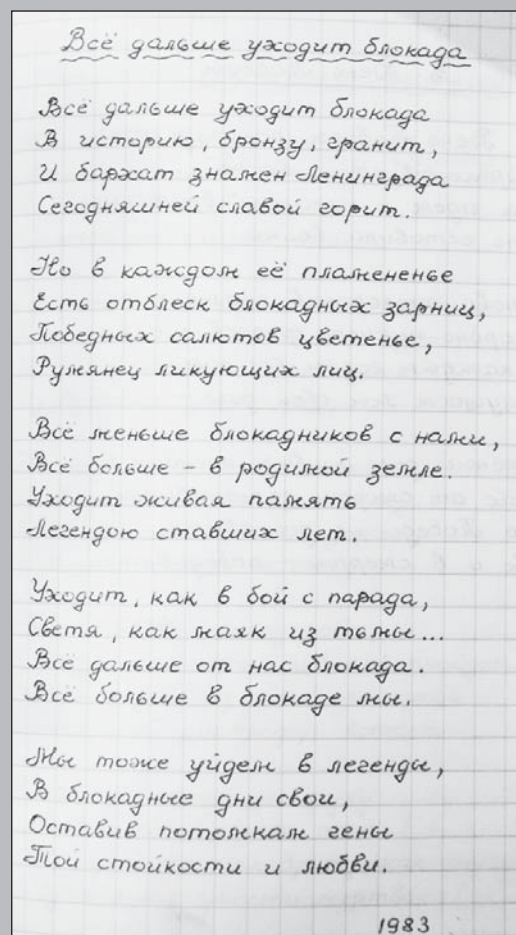 Всё дальше уходит блокада
Всё дальше уходит блокада
В историю, бронзу, гранит,
И бархат знамен Ленинграда
Сегодняшней славой горит.
Но в каждом её пламененье
Есть отблеск блокадных зарниц,
Победных салютов цветенье,
Румянец ликующих лиц.
Всё меньше блокадников с нами,
Всё больше – в родимой земле.
Уходит живая память
Легендою ставших лет.
Уходит, как в бой с парада,
Светя, как маяк из тьмы...
Всё дальше от нас блокада.
Всё больше в блокаде мы.
Мы тоже уйдем в легенды,
В блокадные дни свои,
Оставив потомкам гены
Той стойкости и любви.
1983